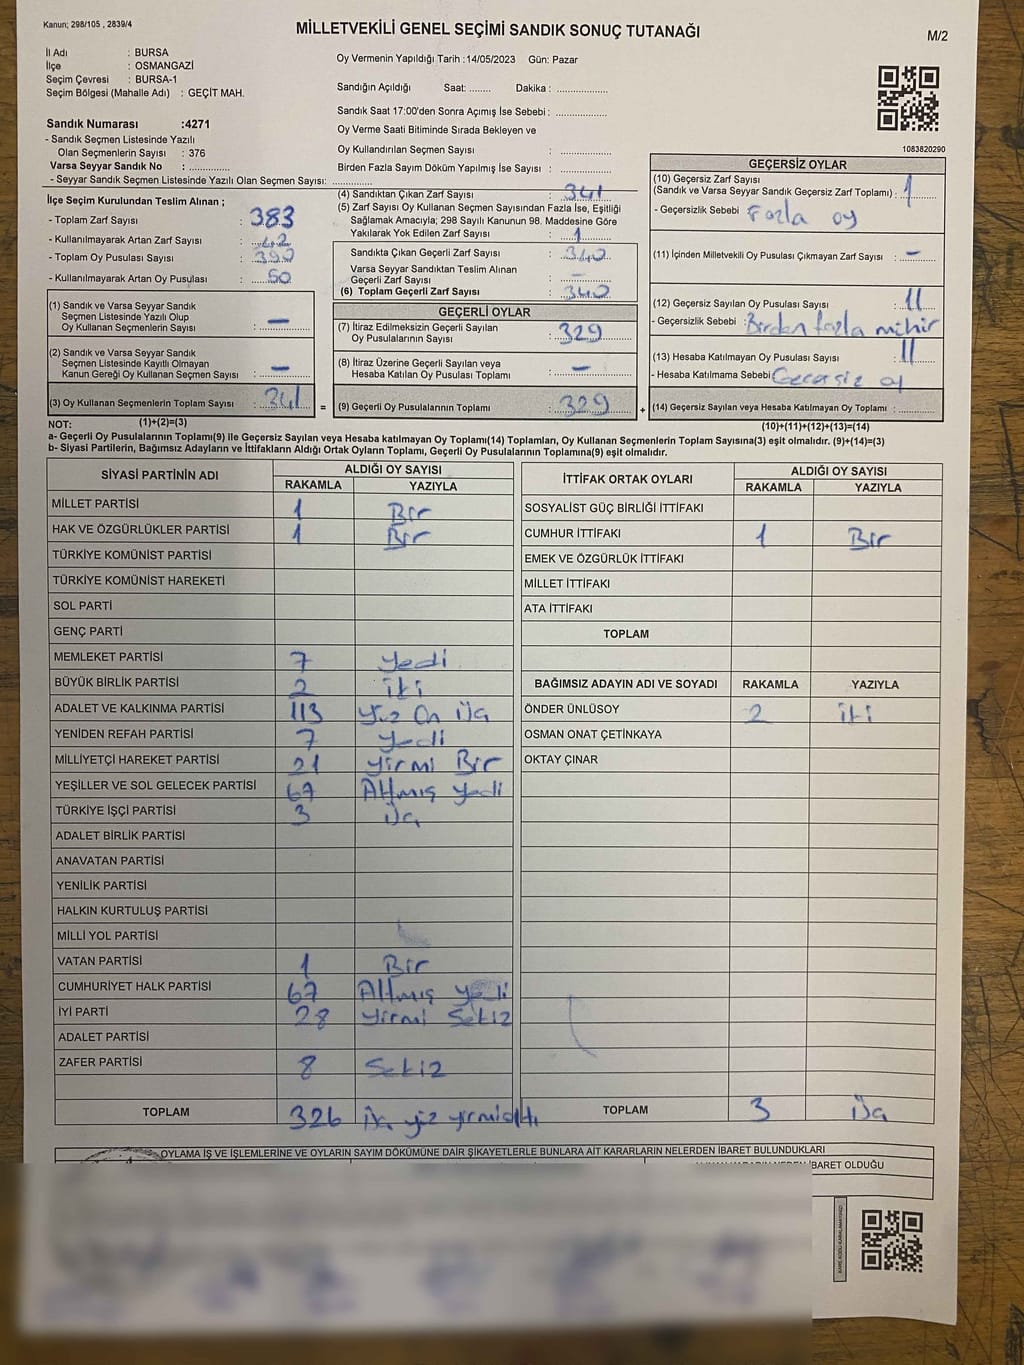 Kanun; 298/105 , 2839/4
MİLLETVEKİLİ GENEL SEÇİMİ SANDIK SONUÇ TUTANAĞI
M/2
İl Adı : BURSA
İlçe : OSMANGAZİ
Seçim Çevresi : BURSA-1
Seçim Bölgesi (Mahalle Adı) : GEÇİT MAH.
Sandık Numarası :4271
- Sandık Seçmen Listesinde Yazılı
Olan Seçmenlerin Sayısı : 376
Varsa Seyyar Sandık No : ..............
- Seyyar Sandık Seçmen Listesinde Yazılı Olan Seçmen Sayısı: ..............
Oy Vermenin Yapıldığı Tarih :14/05/2023 Gün: Pazar
Sandığın Açıldığı Saat: ........ Dakika : ..................
Sandık Saat 17:00'den Sonra Açımış İse Sebebi : ..................
Oy Verme Saati Bitiminde Sırada Bekleyen ve
Oy Kullandırılan Seçmen Sayısı : ..................
Birden Fazla Sayım Döküm Yapılmış İse Sayısı : ..................
1083820290
İlçe Seçim Kurulundan Teslim Alınan ;
- Toplam Zarf Sayısı : 383
- Kullanılmayarak Artan Zarf Sayısı : 42
- Toplam Oy Pusulası Sayısı : 390
- Kullanılmayarak Artan Oy Pusulası : 50
(1) Sandık ve Varsa Seyyar Sandık
Seçmen Listesinde Yazılı Olup
Oy Kullanan Seçmenlerin Sayısı : –
(2) Sandık ve Varsa Seyyar Sandık
Seçmen Listesinde Kayıtlı Olmayan
Kanun Gereği Oy Kullanan Seçmen Sayısı : –
(3) Oy Kullanan Seçmenlerin Toplam Sayısı : 341
(1)+(2)=(3)
(4) Sandıktan Çıkan Zarf Sayısı : 341
(5) Zarf Sayısı Oy Kullanan Seçmen Sayısından Fazla İse, Eşitliği
Sağlamak Amacıyla; 298 Sayılı Kanunun 98. Maddesine Göre
Yakılarak Yok Edilen Zarf Sayısı : 1
Sandıkta Çıkan Geçerli Zarf Sayısı : 340
Varsa Seyyar Sandıktan Teslim Alınan
Geçerli Zarf Sayısı : –
(6) Toplam Geçerli Zarf Sayısı : 340
GEÇERLİ OYLAR
(7) İtiraz Edilmeksizin Geçerli Sayılan
Oy Pusulalarının Sayısı : 329
(8) İtiraz Üzerine Geçerli Sayılan veya
Hesaba Katılan Oy Pusulası Toplamı : –
= (9) Geçerli Oy Pusulalarının Toplamı : 329 +
GEÇERSİZ OYLAR
(10) Geçersiz Zarf Sayısı
(Sandık ve Varsa Seyyar Sandık Geçersiz Zarf Toplamı) : 1
- Geçersizlik Sebebi Fazla oy
(11) İçinden Milletvekili Oy Pusulası Çıkmayan Zarf Sayısı : –
(12) Geçersiz Sayılan Oy Pusulası Sayısı : 11
- Geçersizlik Sebebi : Birden fazla mühür
(13) Hesaba Katılmayan Oy Pusulası Sayısı : 11
- Hesaba Katılmama Sebebi Geçersiz oy
(14) Geçersiz Sayılan veya Hesaba Katılmayan Oy Toplamı : ..........
(10)+(11)+(12)+(13)=(14)
NOT:
a- Geçerli Oy Pusulalarının Toplamı(9) İle Geçersiz Sayılan veya Hesaba katılmayan Oy Toplamı(14) Toplamları, Oy Kullanan Seçmenlerin Toplam Sayısına(3) eşit olmalıdır. (9)+(14)=(3)
b- Siyasi Partilerin, Bağımsız Adayların ve İttifakların Aldığı Ortak Oyların Toplamı, Geçerli Oy Pusulalarının Toplamına(9) eşit olmalıdır.
SİYASİ PARTİNİN ADI ALDIĞI OY SAYISI
RAKAMLA YAZIYLA
MİLLET PARTİSİ 1 Bir
HAK VE ÖZGÜRLÜKLER PARTİSİ 1 Bir
TÜRKİYE KOMÜNİST PARTİSİ
TÜRKİYE KOMÜNİST HAREKETİ
SOL PARTİ
GENÇ PARTİ
MEMLEKET PARTİSİ 7 Yedi
BÜYÜK BİRLİK PARTİSİ 2 iki
ADALET VE KALKINMA PARTİSİ 113 Yüz On Üç
YENİDEN REFAH PARTİSİ 7 Yedi
MİLLİYETÇİ HAREKET PARTİSİ 21 Yirmi Bir
YEŞİLLER VE SOL GELECEK PARTİSİ 67 Altmış Yedi
TÜRKİYE İŞÇİ PARTİSİ 3 Üç
ADALET BİRLİK PARTİSİ
ANAVATAN PARTİSİ
YENİLİK PARTİSİ
HALKIN KURTULUŞ PARTİSİ
MİLLİ YOL PARTİSİ
VATAN PARTİSİ 1 Bir
CUMHURİYET HALK PARTİSİ 67 Altmış Yedi
İYİ PARTİ 28 Yirmi Sekiz
ADALET PARTİSİ
ZAFER PARTİSİ 8 Sekiz
TOPLAM 326 Üç yüz yirmialtı
İTTİFAK ORTAK OYLARI ALDIĞI OY SAYISI
RAKAMLA YAZIYLA
SOSYALİST GÜÇ BİRLİĞİ İTTİFAKI
CUMHUR İTTİFAKI 1 Bir
EMEK VE ÖZGÜRLÜK İTTİFAKI
MİLLET İTTİFAKI
ATA İTTİFAKI
TOPLAM
BAĞIMSIZ ADAYIN ADI VE SOYADI RAKAMLA YAZIYLA
ÖNDER ÜNLÜSOY 2 iki
OSMAN ONAT ÇETİNKAYA
OKTAY ÇINAR
TOPLAM 3 Üç
OYLAMA İŞ VE İŞLEMLERİNE VE OYLARIN SAYIM DÖKÜMÜNE DAİR ŞİKAYETLERLE BUNLARA AİT KARARLARIN NELERDEN İBARET BULUNDUKLARI
İBARET OLDUĞU